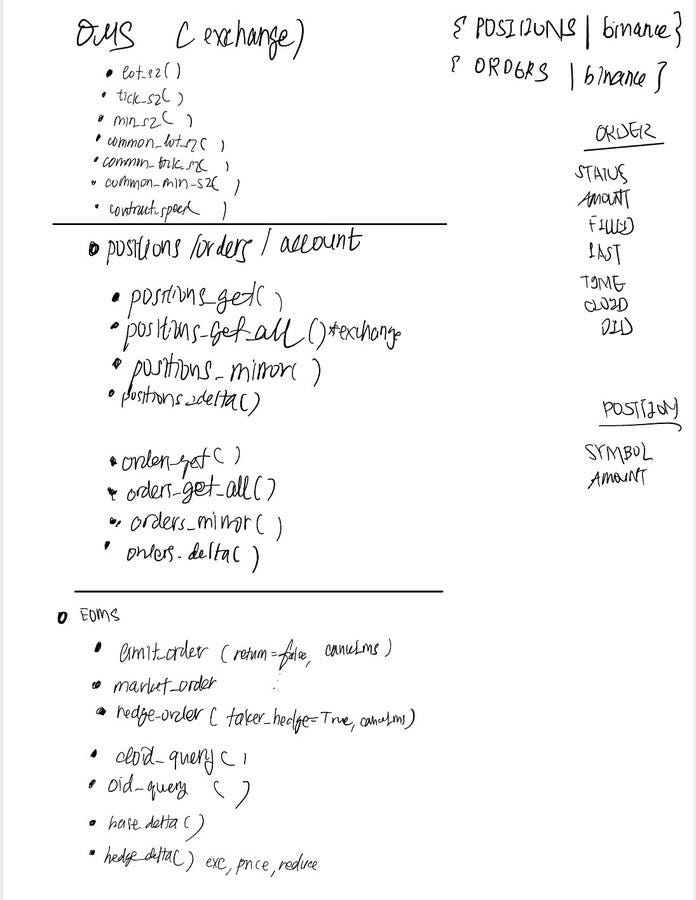 OMS (exchange)
• lot_sz()
• tick_sz()
• min_sz()
• common_lot_sz()
• common_tick_sz()
• common_min_sz()
• contract_specs()
• positions/orders/account
• positions_get()
• positions_get_all() *exchange
• positions_mirror()
• positions_delta()
• orders_get()
• orders_get_all()
• orders_mirror()
• orders_delta()
• EOMS
• limit_order (return=false, cancelms)
• market_order
• hedge_order (taker_hedge=True, cancelms)
• cloid_query()
• oid_query()
• base_delta()
• hedge_delta() exc, price, reduce
{ POSITIONS | binance}
{ ORDERS | binance}
ORDER
STATUS
AMOUNT
FILLED
LAST
TIME
CLOID
OID
POSITION
SYMBOL
AMOUNT